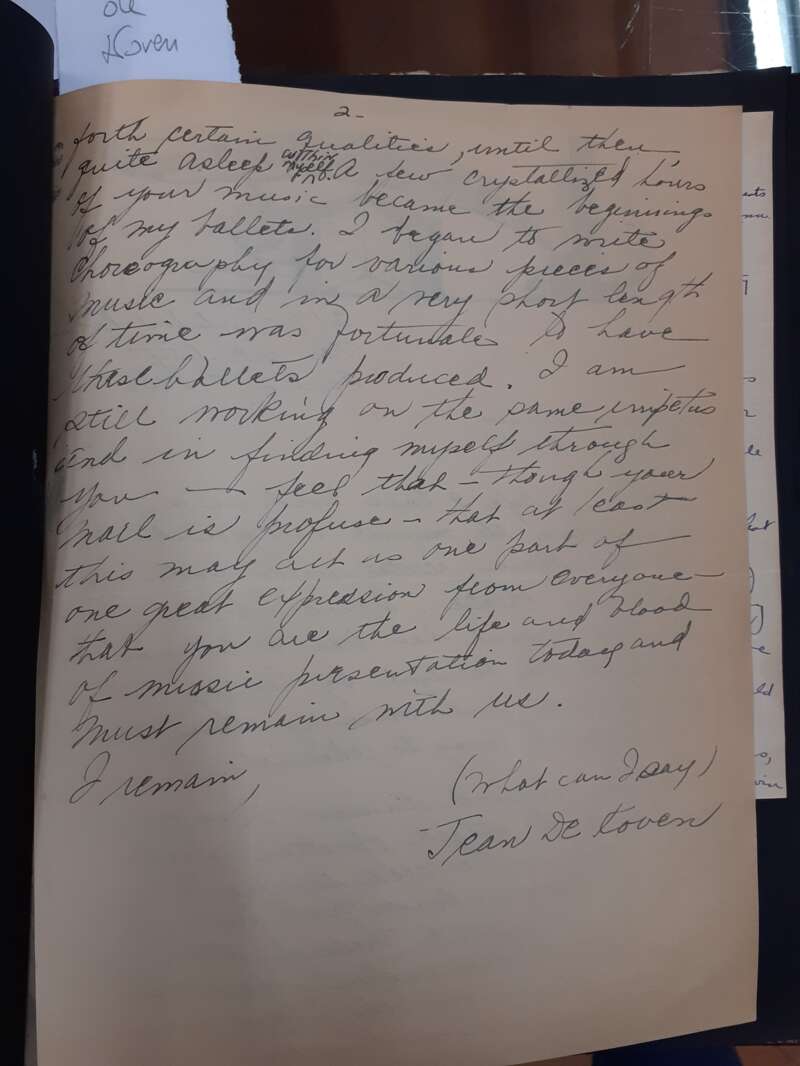 de
Koven
2-
forth certain qualities, until then
quite asleep within myself. A few crystallized hours
of your music became the beginnings
of my ballets. I began to write
choreography for various pieces of
music and in a very short length
of time was fortunate to have
these ballets produced. I am
still working on the same impetus
and in finding myself through
you — feel that – though your
mail is profuse – that at least
this may act as one part of
one great expression from everyone –
that you are the life and blood
of music presentation today and
must remain with us.
I remain,
(What can I say)
Jean De Koven